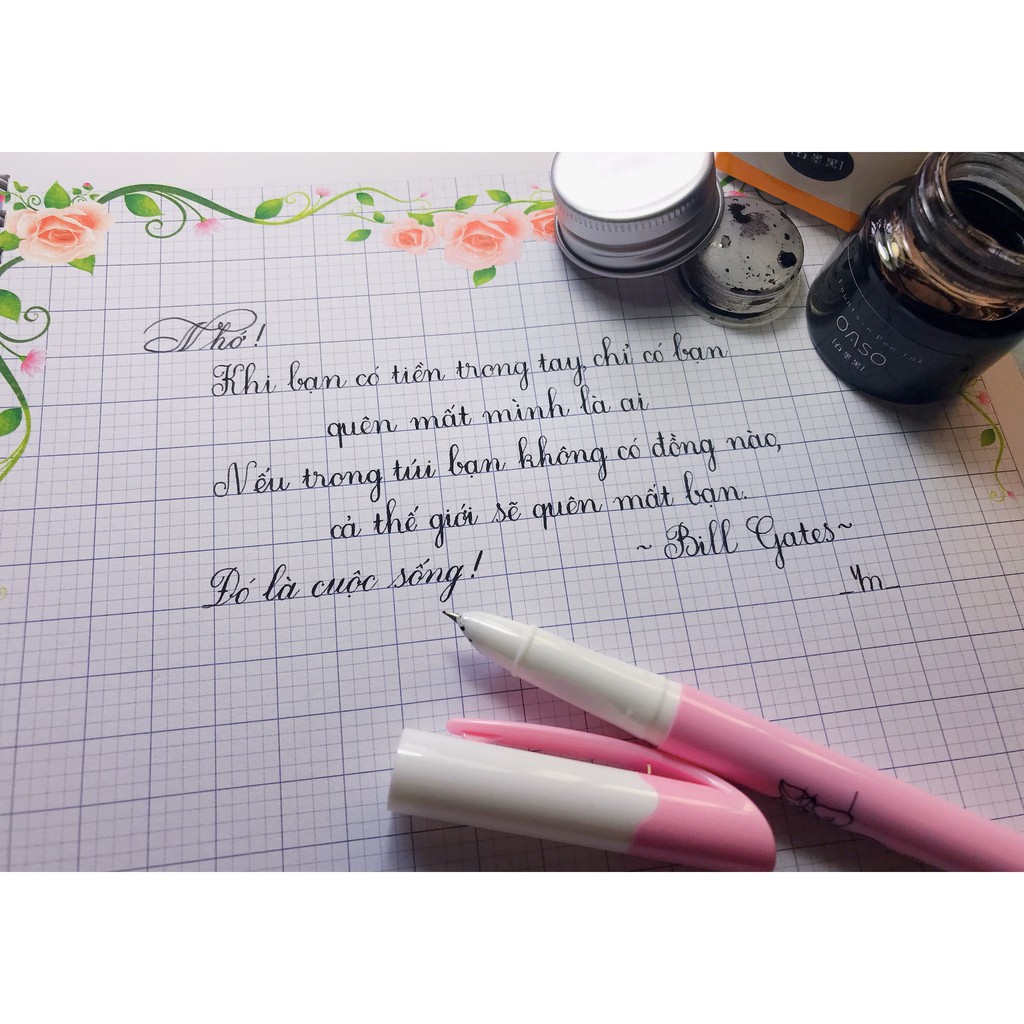 Nhớ!
Khi bạn có tiền trong tay, chỉ có bạn
quên mất mình là ai
Nếu trong túi bạn không có đồng nào,
cả thế giới sẽ quên mất bạn.
~ Bill Gates ~
Đó là cuộc sống!
Fountain Pen Ink
OASO